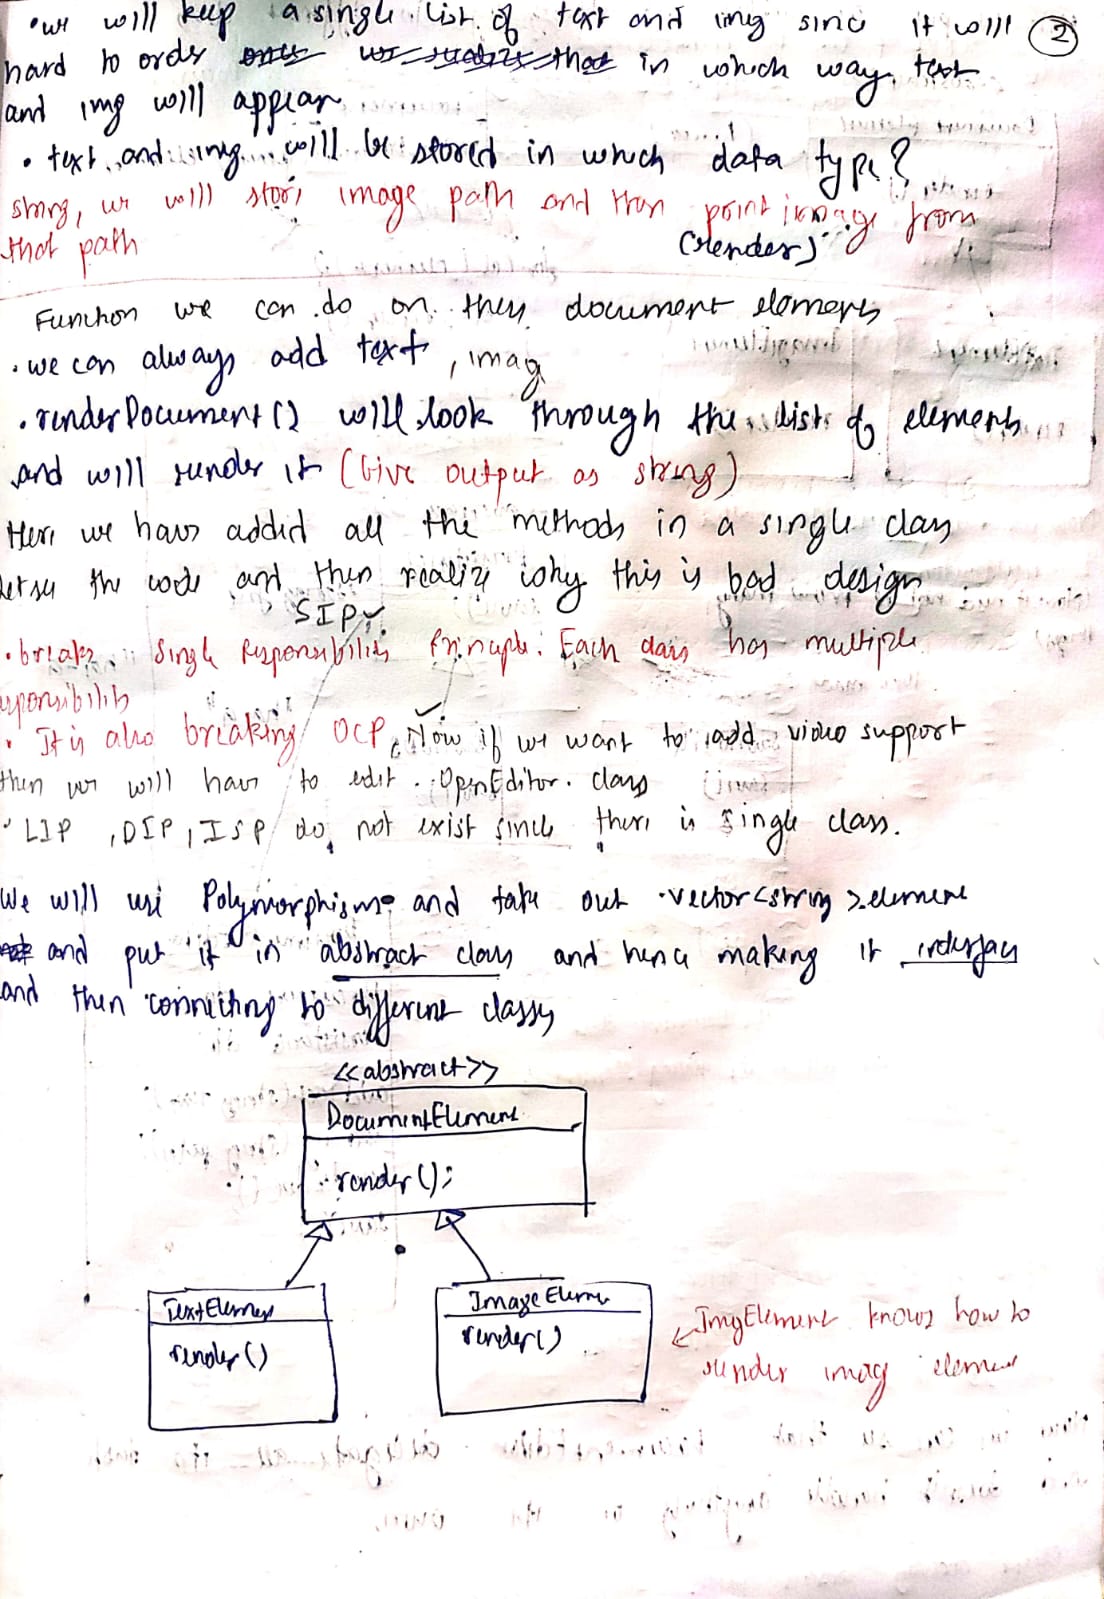 • we will keep a single list of text and img since it will
(2)
hard to order in which way text
and img will appear
• text and img will be stored in which data type?
string, we will store image path and then print image from
that path
(render)
Function we can do on these document elements
• we can always add text, imag
• renderDocument() will look through the list of elements
and will render it (Give output as string)
Here we have added all the methods in a single class
let see the code and then realize why this is bad design
SIP
• breaks Single Responsibility Principle: Each class has multiple
responsibility
• It is also breaking OCP, Now if we want to add video support
then we will have to edit OpenEditor class
• LIP, DIP, ISP do not exist since there is single class.
We will use Polymorphism and take out vector<string> element
and put it in abstract class and hence making it interface
and then connecting to different classes
<<abstract>>
DocumentElement
render();
TextElement
render()
ImageElement
render()
ImgElement knows how to
render imag element